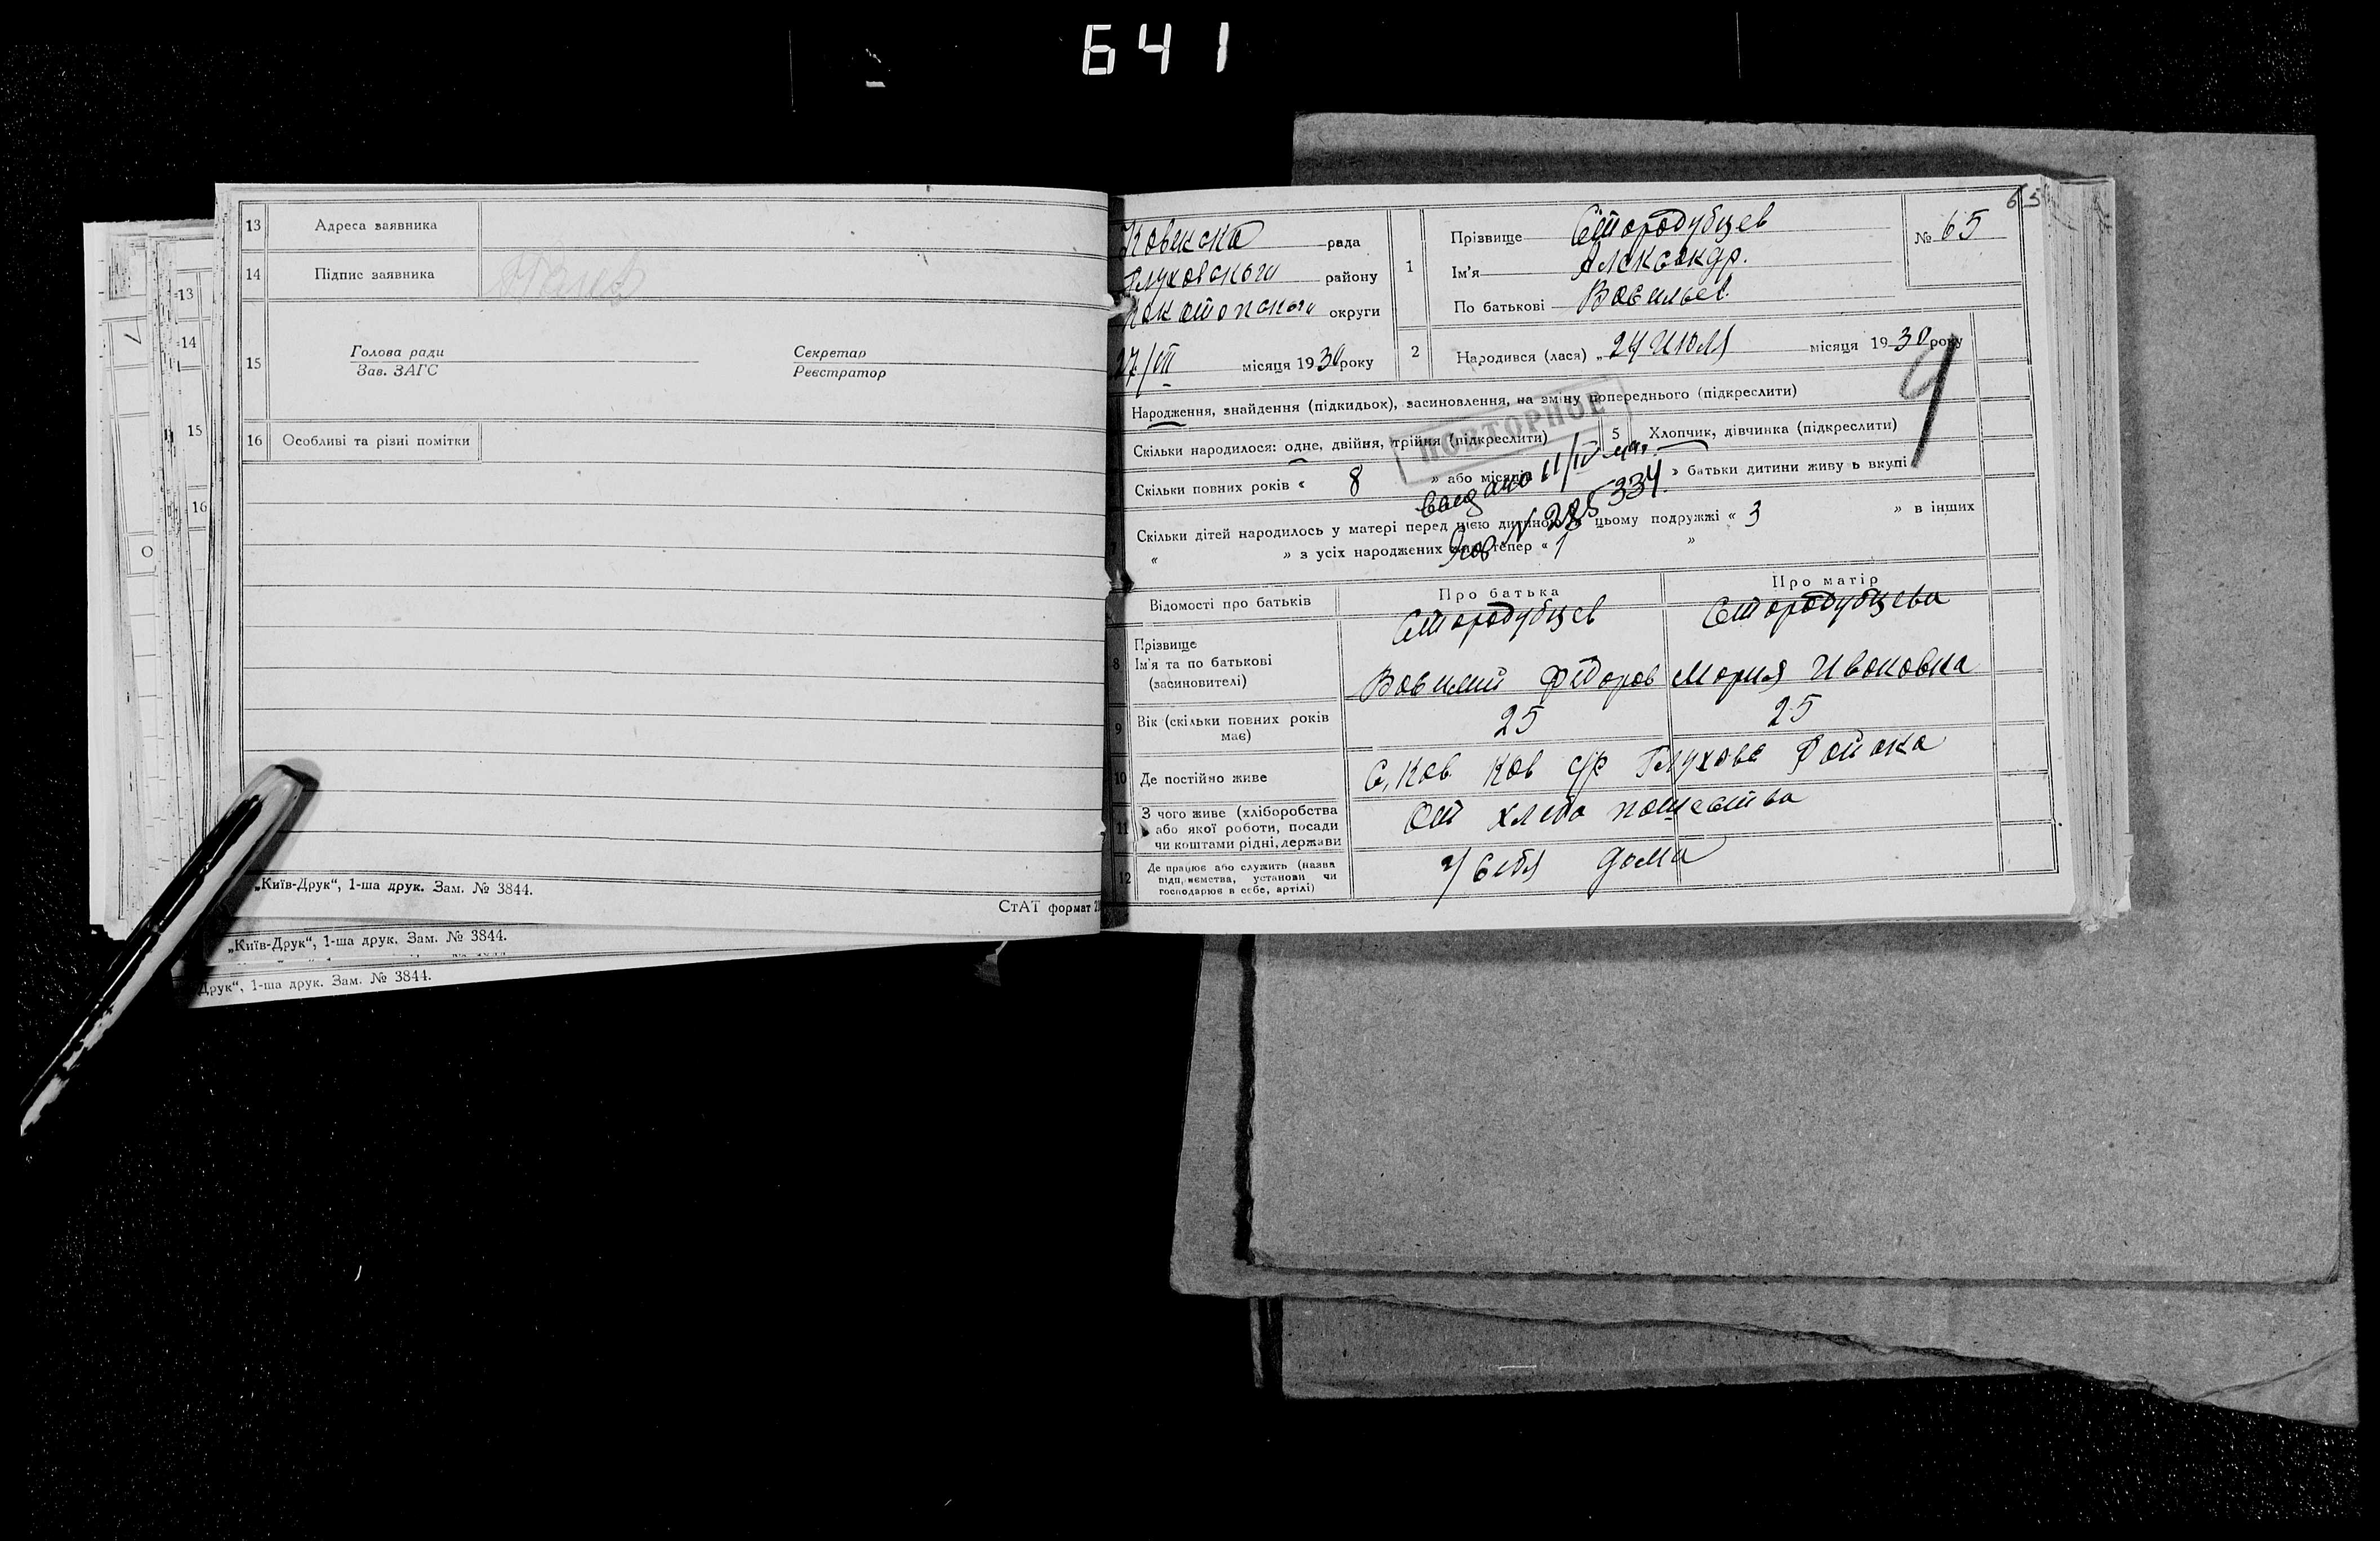 641
13 Адреса заявника
14 Підпис заявника
15 Голова ради Секретар
Зав. ЗАГС Реєстратор
16 Особливі та різні помітки
„Київ-Друк“, 1-ша друк. Зам. № 3844.
СтАТ формат
„Київ-Друк“, 1-ша друк. Зам. № 3844.
Друк“, 1-ша друк. Зам. № 3844.
13
14
15
16
65
рада
Глуховського району
Конотопского округи
27/VII місяця 1930 року
1 Прізвище Стородубцев
Ім'я Александр.
По батькові Васильев.
№ 65
2 Народився (лася) „ 24 Июля місяця 1930 року
Народження, знайдення (підкидьок), засиновлення, на зміну попереднього (підкреслити)
ПОВТОРНОЕ
Скільки народилося: одне, двійня, трійня (підкреслити) 5 Хлопчик, дівчинка (підкреслити)
Скільки повних років « 8 » або місяців » батьки дитини живуть вкупі
11/IV
№ 285334.
Скільки дітей народилось у матері перед цією дитиною в цьому подружжі « 3 » в інших
« » з усіх народжених тепер « 1 »
Відомості про батьків Про батька Про матір
8 Прізвище Стородубцев Стородубцева
Ім'я та по батькові
(засиновителі) Василий Фёдоров Мария Ивановна
9 Вік (скільки повних років має) 25 25
10 Де постійно живе С. Ков. Ков с/р Глуховс Района
11 З чого живе (хліборобства
або якої роботи, посади
чи коштами рідні, держави От хлебо пашества
12 Де працює або служить (назва
підприємства, установи чи
господарює в себе, артілі) у себя дома